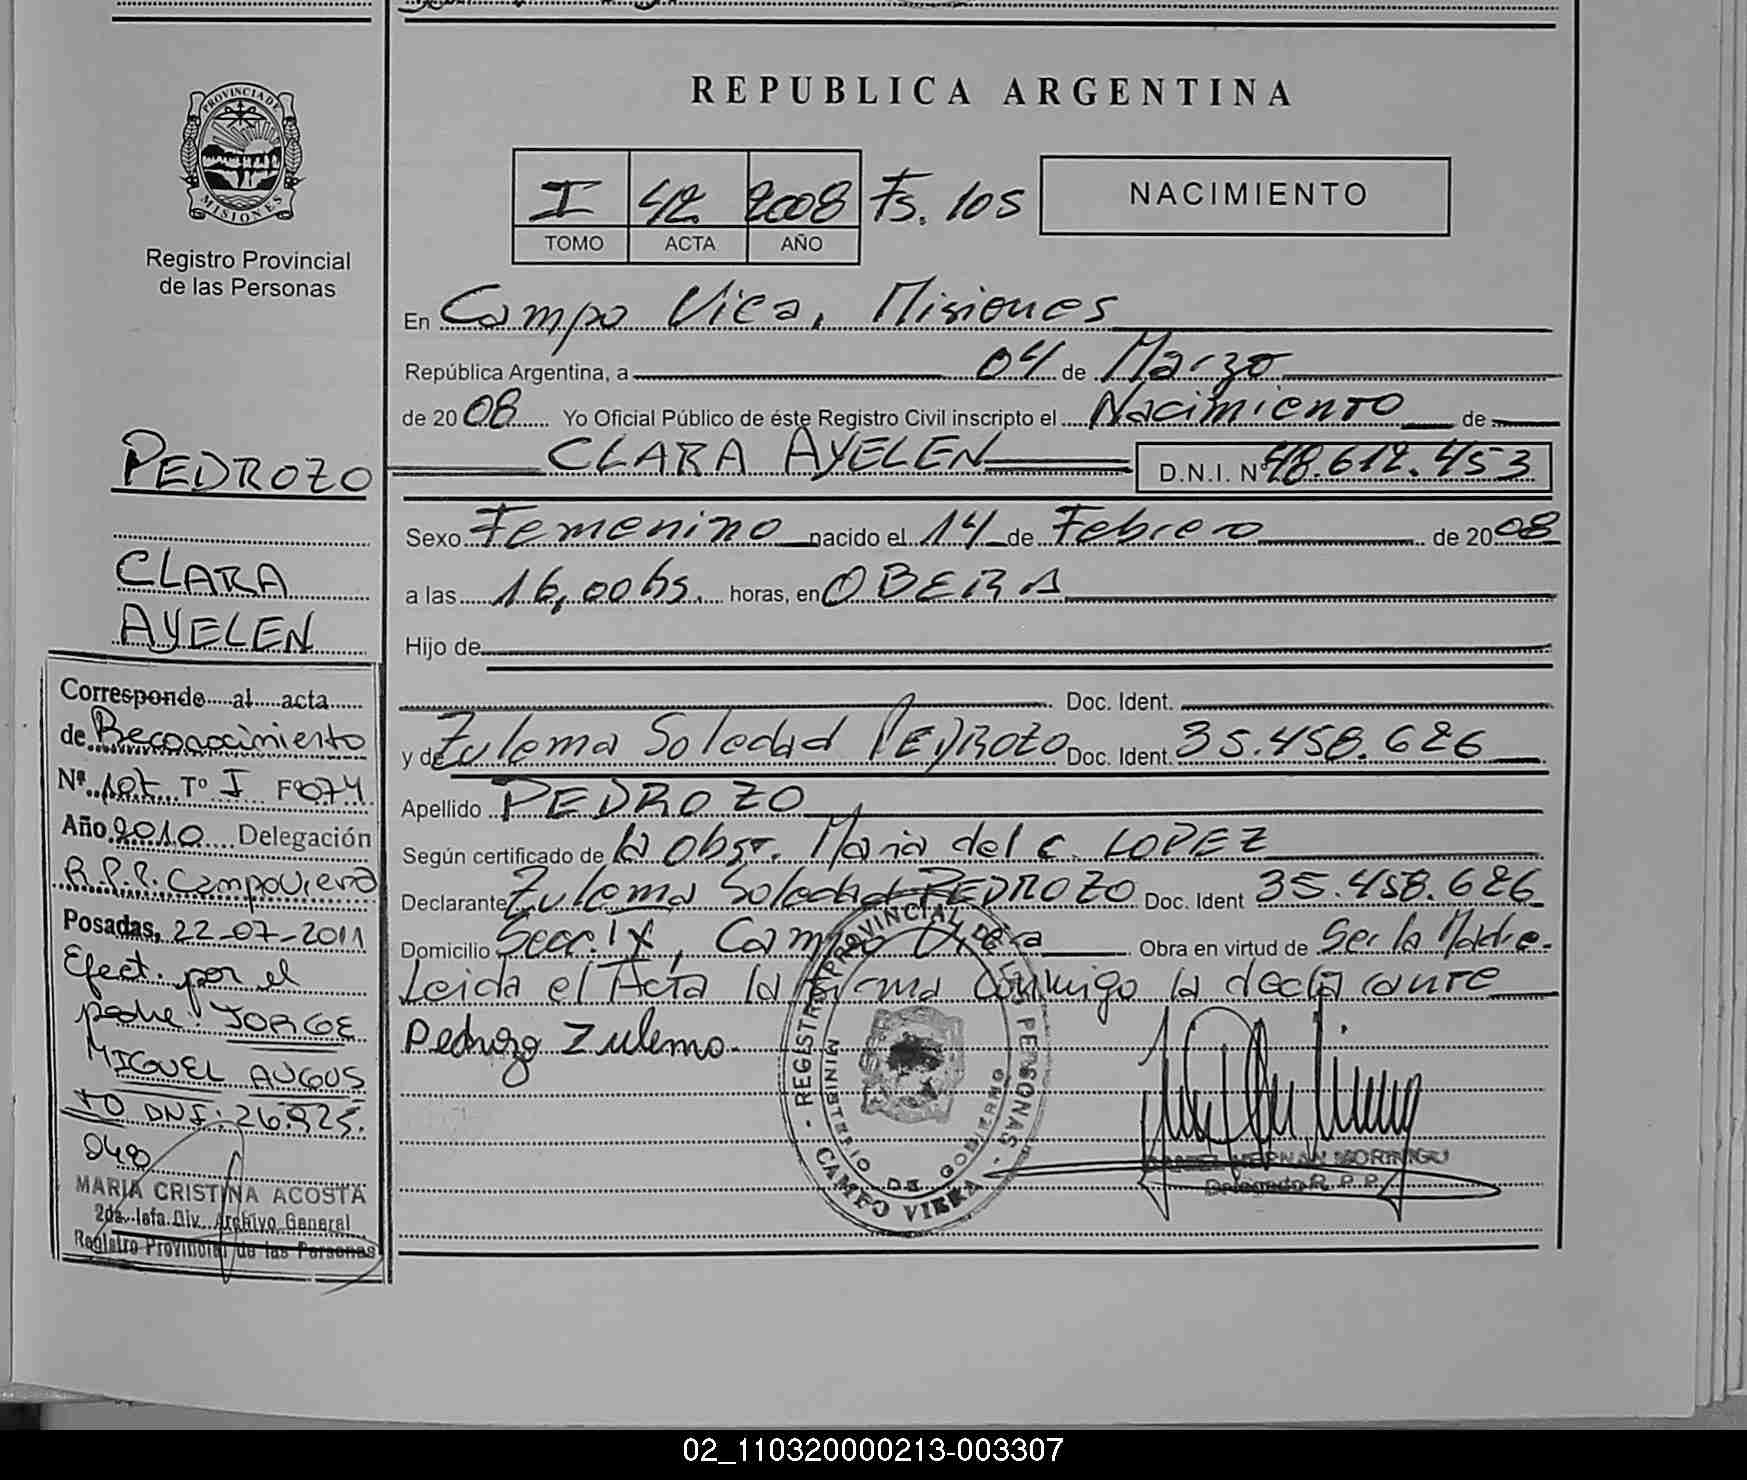 REPUBLICA ARGENTINA
PROVINCIA DE
MISIONES
Registro Provincial
de las Personas
I 42 2008 Fs. 105
TOMO ACTA AÑO
NACIMIENTO
En Campo Viera, Misiones
República Argentina, a 04 de Marzo
de 2008 Yo Oficial Público de éste Registro Civil inscripto el Nacimiento de
CLARA AYELEN D.N.I. Nº 48.612.453
Sexo Femenino nacido el 14 de Febrero de 2008
a las 16,00 hs. horas, en OBERA
Hijo de
Doc. Ident.
y de Zulema Soledad PEDROZO Doc. Ident. 35.458.626
Apellido PEDROZO
Según certificado de la Obst. Maria del C. LOPEZ
Declarante Zulema Soledad PEDROZO Doc. Ident 35.458.626
Domicilio Secc. IX, Campo Viera Obra en virtud de Ser la Madre.
Leida el Acta la firma conmigo la declarante
Pedrozo Zulema.
REGISTRO PROVINCIAL DE LAS PERSONAS
MINISTERIO DE GOBIERNO
CAMPO VIERA
DANIEL HERNAN MORINIGO
Delegado R. P. P.
PEDROZO
CLARA
AYELEN
Corresponde al acta
de Reconocimiento
Nº 107 Tº I Fº 074
Año 2010 Delegación
R.P.P. Campo Viera
Posadas, 22-07-2011
Efect. por el
padre: JORGE
MIGUEL AUGUS
TO DNI: 26.925.
040
MARIA CRISTINA ACOSTA
2da. Jefa. Div. Archivo General
Registro Provincial de las Personas
02_110320000213-003307